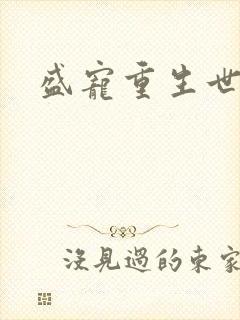 盛寵重生世
沒見過的東家